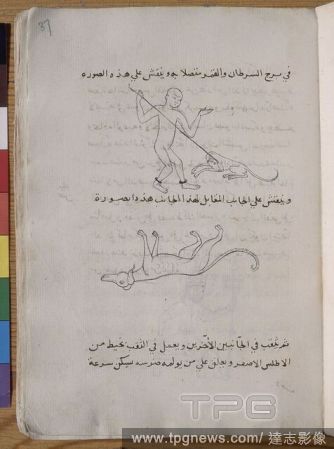 37
في برج السرطان والقمر متصلا به وينقش علي هذه الصوره
وينقش علي الجانب المقابل لهذا الجانب هذه الصورة
ثم يثقب في الجانبين الآخرين ويعمل في الثقب خيط من
الاطلس الاصفر ويعلق علي من يولمه ضرسه يسكن سرعة
TPG
www.tpgnews.com/達志影像